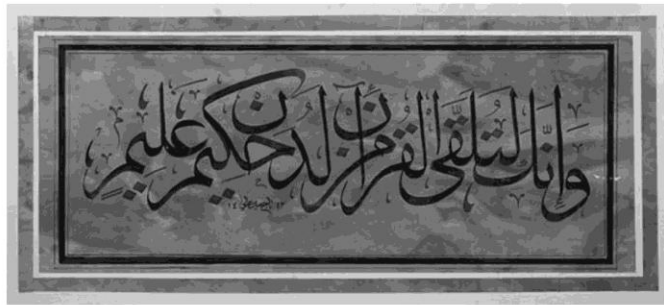 وَإِنَّكَ لَتُلَقَّى الْقُرْآنَ مِن لَّدُنْ حَكِيمٍ عَلِيمٍ